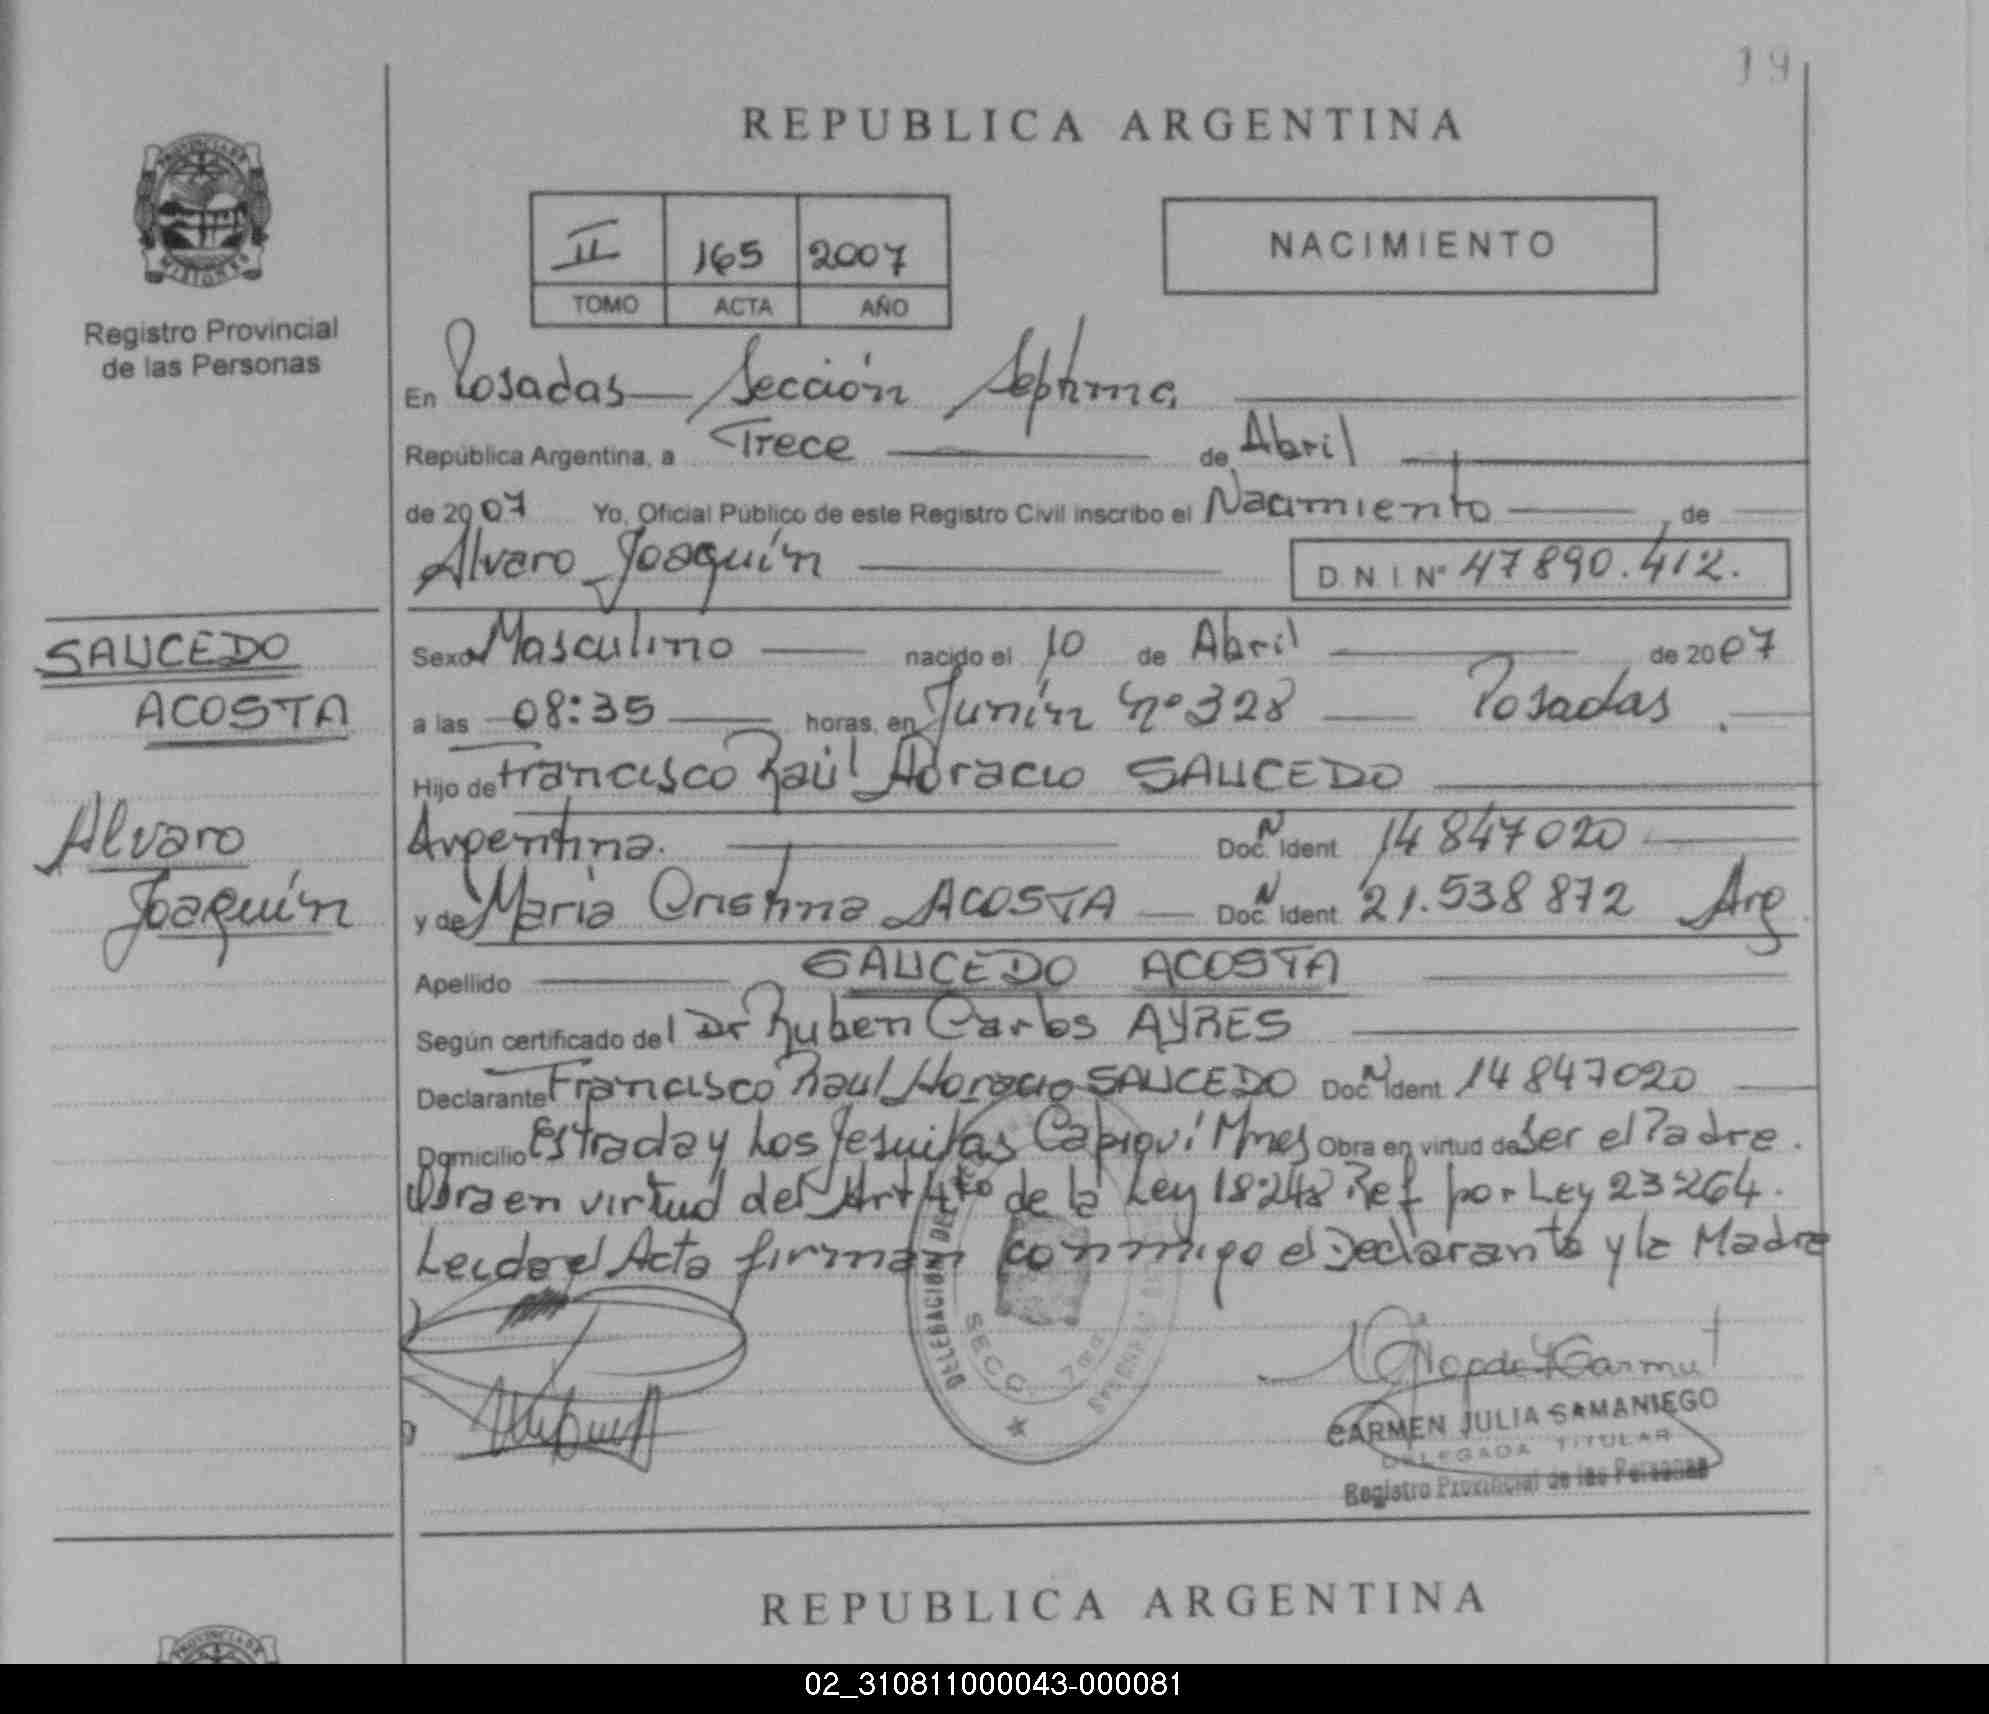 19
REPUBLICA ARGENTINA
PROVINCIA DE
MISIONES
Registro Provincial
de las Personas
II 165 2007
TOMO ACTA AÑO
NACIMIENTO
En Posadas Sección Septima
República Argentina, a Trece de Abril
de 2007 Yo, Oficial Público de este Registro Civil inscribo el Nacimiento, de
Alvaro Joaquín D N I Nº 47890.412.
SAUCEDO
ACOSTA
Alvaro
Joaquín
Sexo Masculino nacido el 10 de Abril de 2007
a las 08:35 horas, en Junín Nº 328 Posadas.
Hijo de Francisco Raúl Horacio SAUCEDO
Argentina. Doc. N Ident. 14847020
y de María Cristina ACOSTA Doc. N Ident. 21.538872 Arg.
Apellido SAUCEDO ACOSTA
Según certificado del Dr Ruben Carlos AYRES
Declarante Francisco Raul Horacio SAUCEDO Doc. N Ident. 14847020
Domicilio Estrada y Los Jesuitas Capioví Mnes Obra en virtud de Ser el Padre.
Obra en virtud del Art 4to de la Ley 18.248 Ref por Ley 23264.
Leida el Acta firman conmigo el Declarante y la Madre
DELEGACION DEL
SECC. 7ma
CARMEN JULIA SAMANIEGO
DELEGADA TITULAR
Registro Provincial de las Personas
REPUBLICA ARGENTINA
PROVINCIA DE
02_310811000043-000081